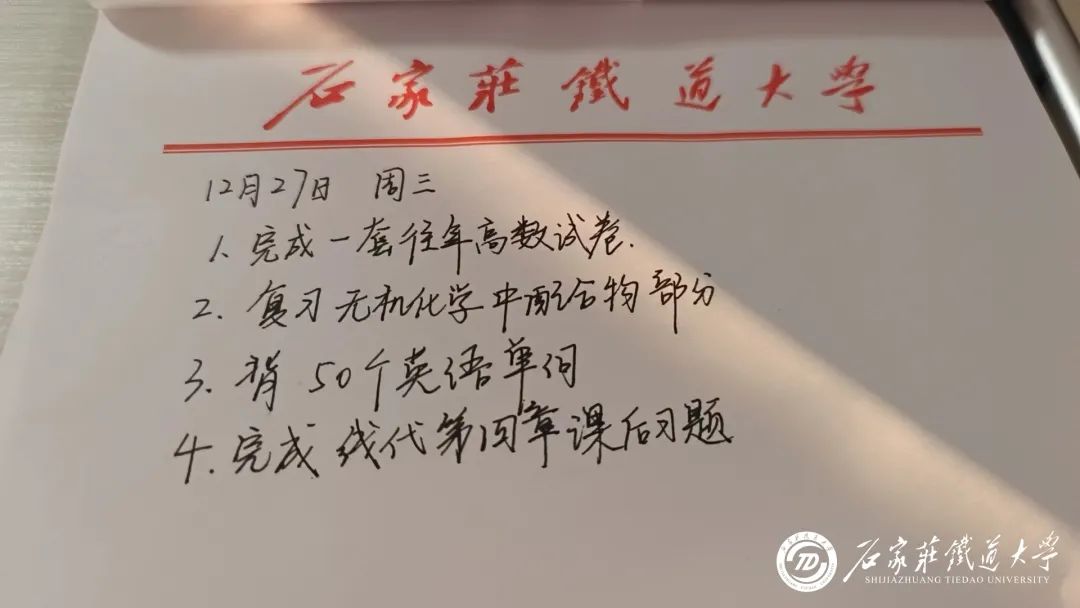 石家莊鐵道大學
12月27日 周三
1. 完成一套往年高数试卷.
2. 复习无机化学中配合物部分
3. 背50个英语单词
4. 完成线代第四章课后习题
石家莊鐵道大學
SHIJIAZHUANG TIEDAO UNIVERSITY